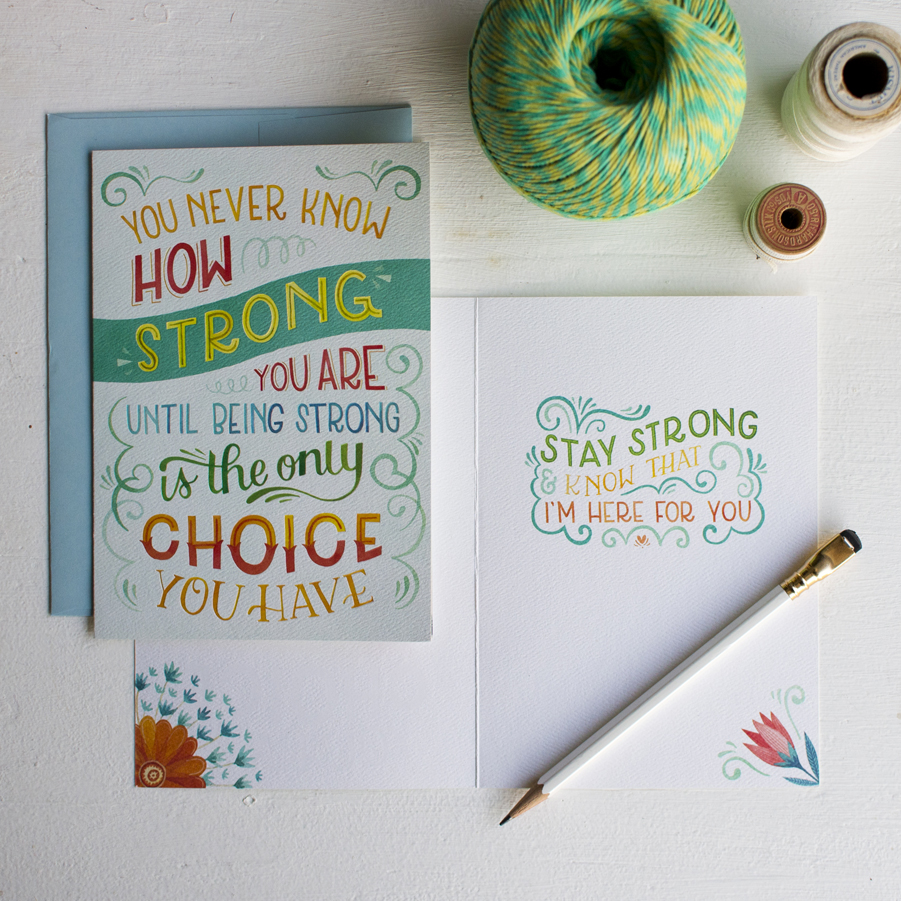 YOU NEVER KNOW
HOW
STRONG
YOU ARE
UNTIL BEING STRONG
is the only
CHOICE
YOU HAVE
STAY STRONG
& KNOW THAT
I'M HERE FOR YOU